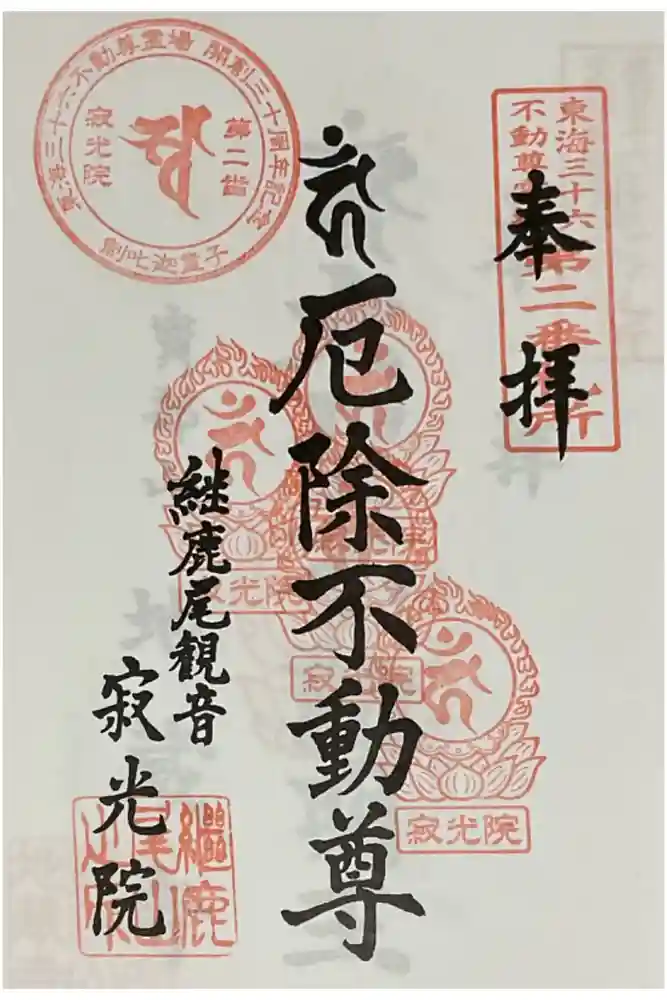 奉拝
東海三十六
不動尊
第二番
所
𑖮𑖯𑖽
厄除不動尊
継鹿尾観音
寂光院
三十六不動尊霊場 開創三十周年記念
第二番
寂光院
制吒迦童子
寂光院
寂光院
寂光院
継鹿
尾山
之印